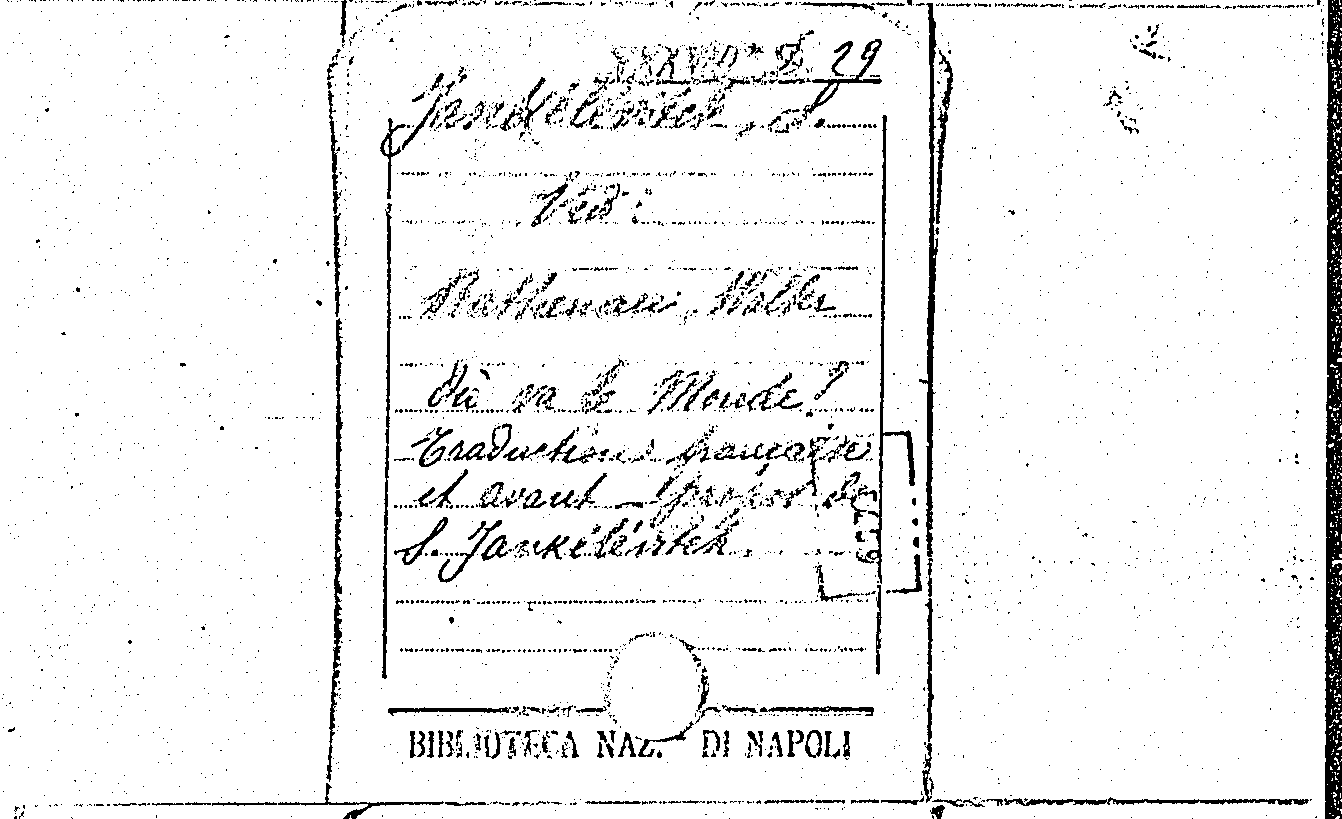 29
Jankélévitch, S.
Ved:
Rathenau, Walter
Où va le Monde?
Traductions française
et avant-propos de
S. Jankélévitch.
BIBLIOTECA NAZ. - DI NAPOLI